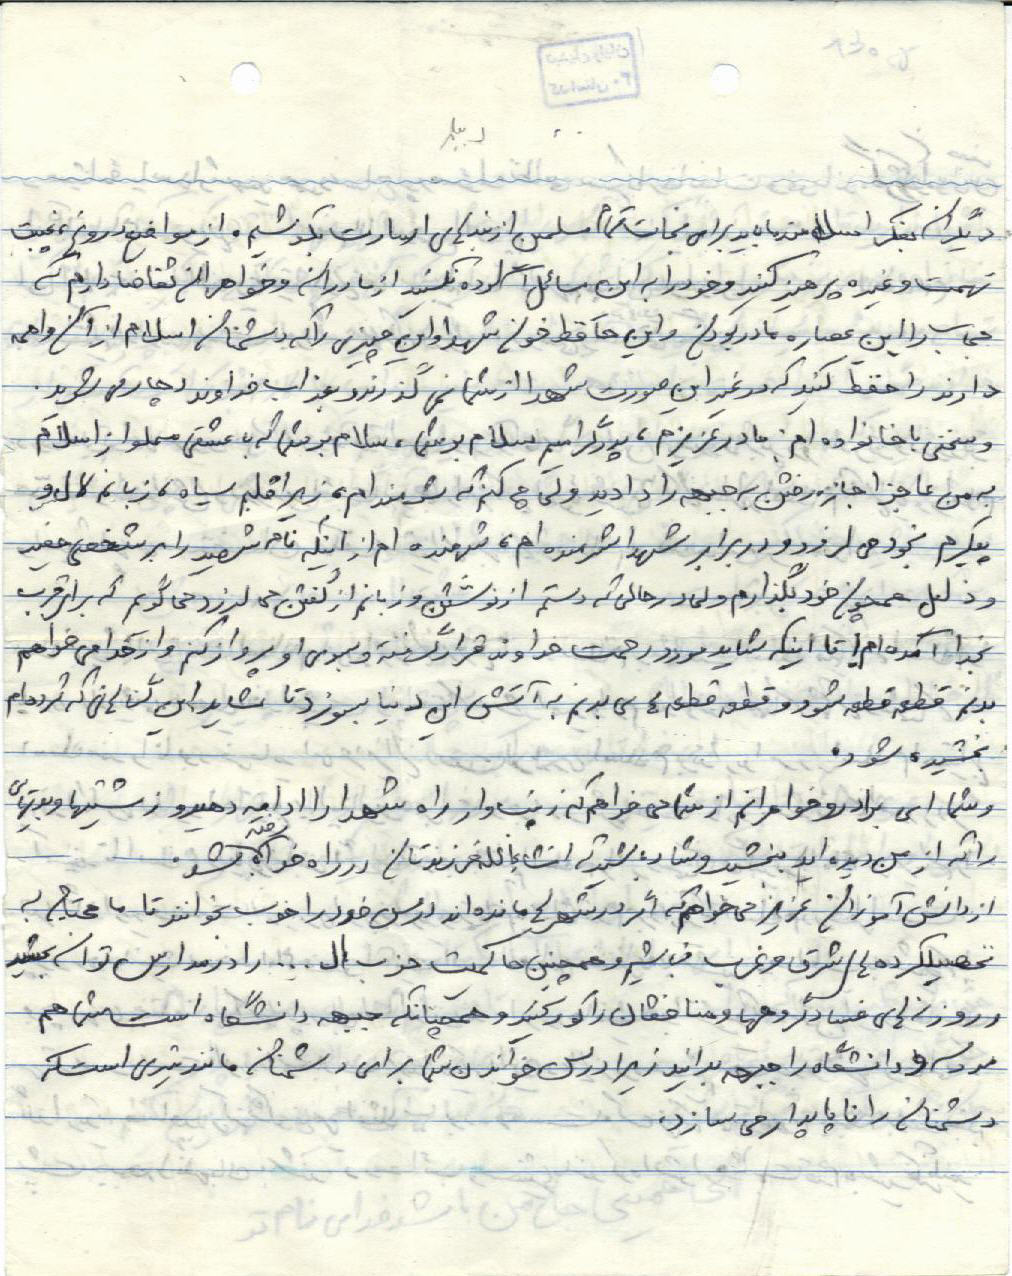 دیگران بفکر اسلام عزیز باید برای نجات تمام مسلمین از بندهای اسارت بکوشیم، از موافق دروغ، غیبت
تهمت و غیره پرهیز کنند و خود را به این مسائل آلوده نکنند از مادران و خواهران تقاضا دارم که
حجاب را این عصاره مادر بودن و این حافظ خون شهدا و این چیزی را که دشمنان اسلام از آن واهمه
دارند را حفظ کنید که در غیر این صورت شهدا از شما نمی گذرند و بعذاب خداوند دچار می شوید.
و سخنی با خانواده ام: مادر عزیزم، پدر گرامیم سلام بر شما، سلام بر شما که با عشقی مملو از اسلام
به من عاجز اجازه رفتن به جبهه را دادید ولی چه کنم که شرمنده ام، زیرا قلبم سیاه، زبانم لال و
پیکرم بخود می لرزد و در برابر شهدا شرمنده ام، شرمنده ام از اینکه نام شهید را بر شخصی حقیر
و ذلیل همچون خود بگذارم ولی در حالی که دستم از نوشتن و زبانم از گفتن می لرزد می گویم که برای قرب
بخدا آمده ام تا اینکه شاید مورد رحمت خداوند قرار گرفته و بسوی او پرواز کنم و از خدا می خواهم
بدنم قطعه قطعه شود و قطعه های بدنم به آتش این دنیا بسوزد تا شاید این گناهانی که کرده ام
بخشیده شود.
و شما ای برادر و خواهرانم از شما می خواهم که زینب وار راه شهدا را ادامه دهید و زشتیها و بدیهایی
را که از من دیده اید ببخشید و شاد باشید که انشاءالله فرزندتان در راه خدا رفته
از دانش آموزان عزیز می خواهم که اگر در شهر مانده اند درس خود را خوب بخوانند تا ما محتاج به
تحصیلکرده های شرق و غرب نباشیم و همچنین حاکمیت حزب ال... را در مدارس توان بخشید
و روزنه های فساد گروهها و منافقان را کور کنید و همچنانکه جبهه دانشگاه است شما هم
مدرسه و دانشگاه را جبهه بدانید زیرا درس خواندن شما برای دشمنان مانند تیری است که
دشمنان را ناپایدار می سازد.